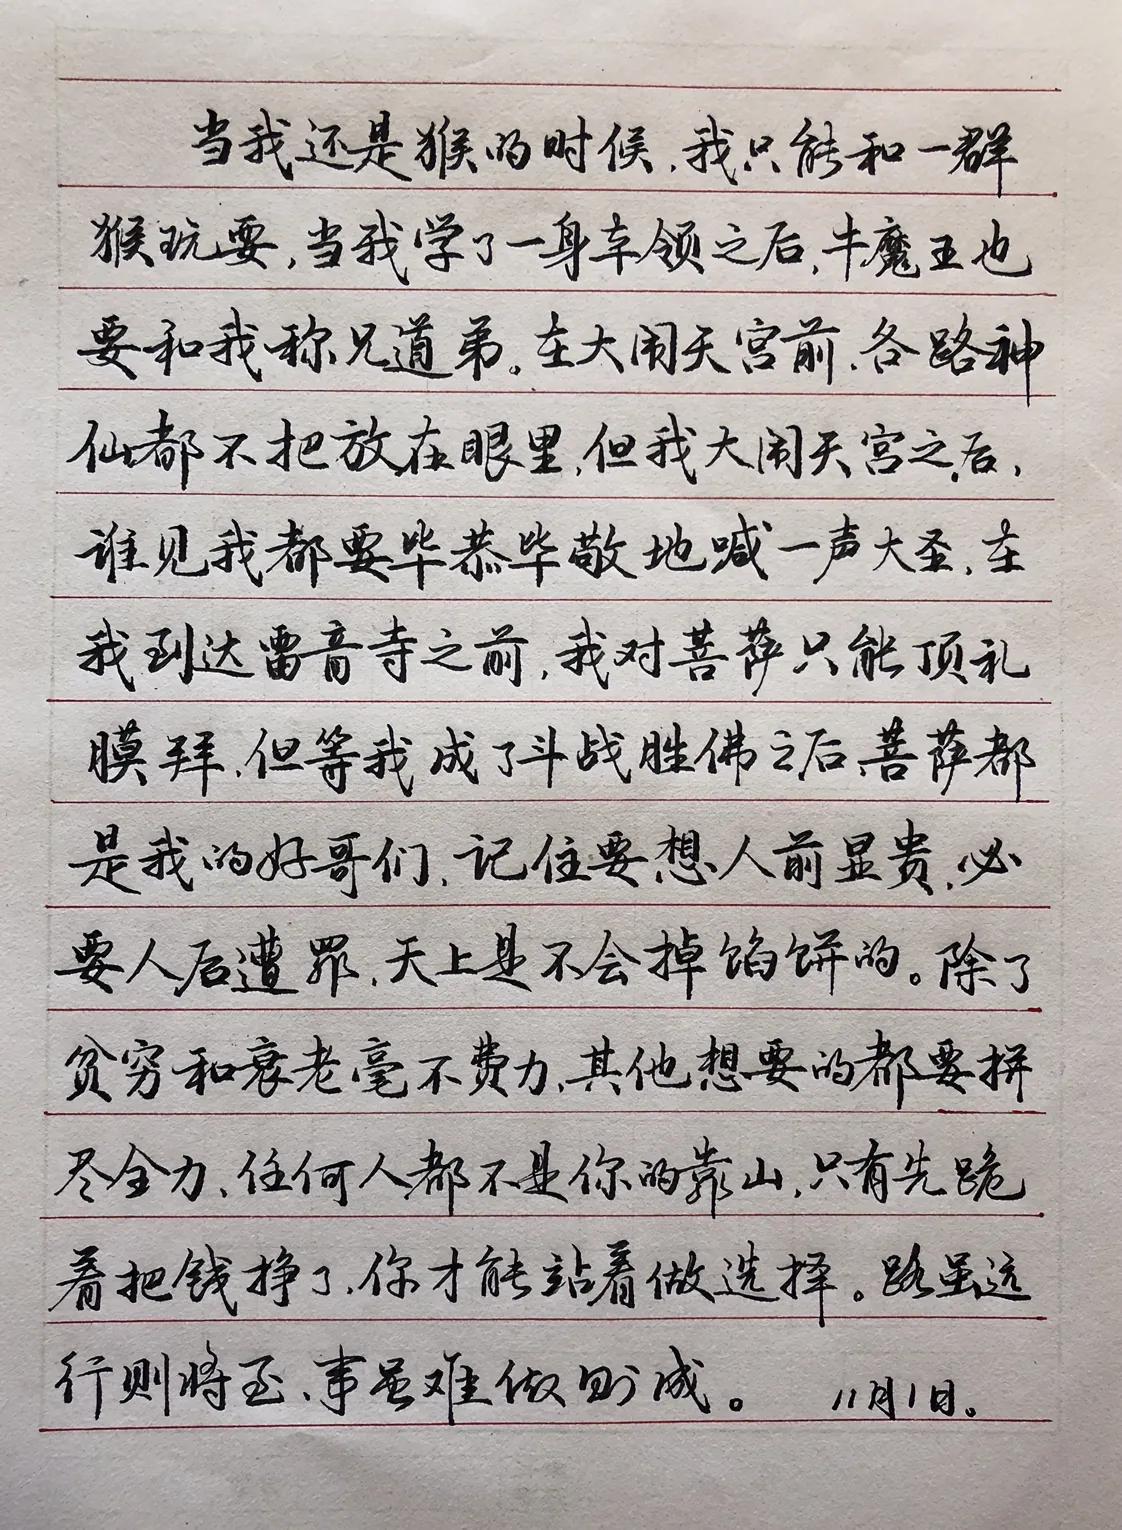 当我还是猴的时候,我只能和一群
猴玩耍,当我学了一身本领之后,牛魔王也
要和我称兄道弟。在大闹天宫前,各路神
仙都不把放在眼里,但我大闹天宫之后,
谁见我都要毕恭毕敬地喊一声大圣,在
我到达雷音寺之前,我对菩萨只能顶礼
膜拜,但等我成了斗战胜佛之后,菩萨都
是我的好哥们,记住要想人前显贵,必
要人后遭罪,天上是不会掉馅饼的。除了
贫穷和衰老毫不费力,其他想要的都要拼
尽全力,任何人都不是你的靠山,只有先跪
着把钱挣了,你才能站着做选择。路虽远
行则将至,事虽难做则成。 11月1日。